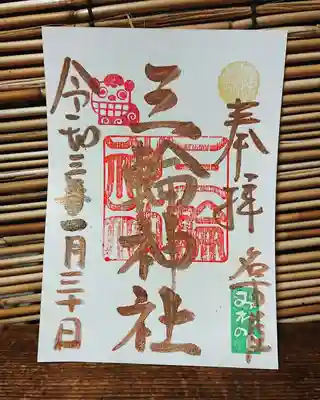 奉拝
名古屋
三輪神社
令和三年一月三十日